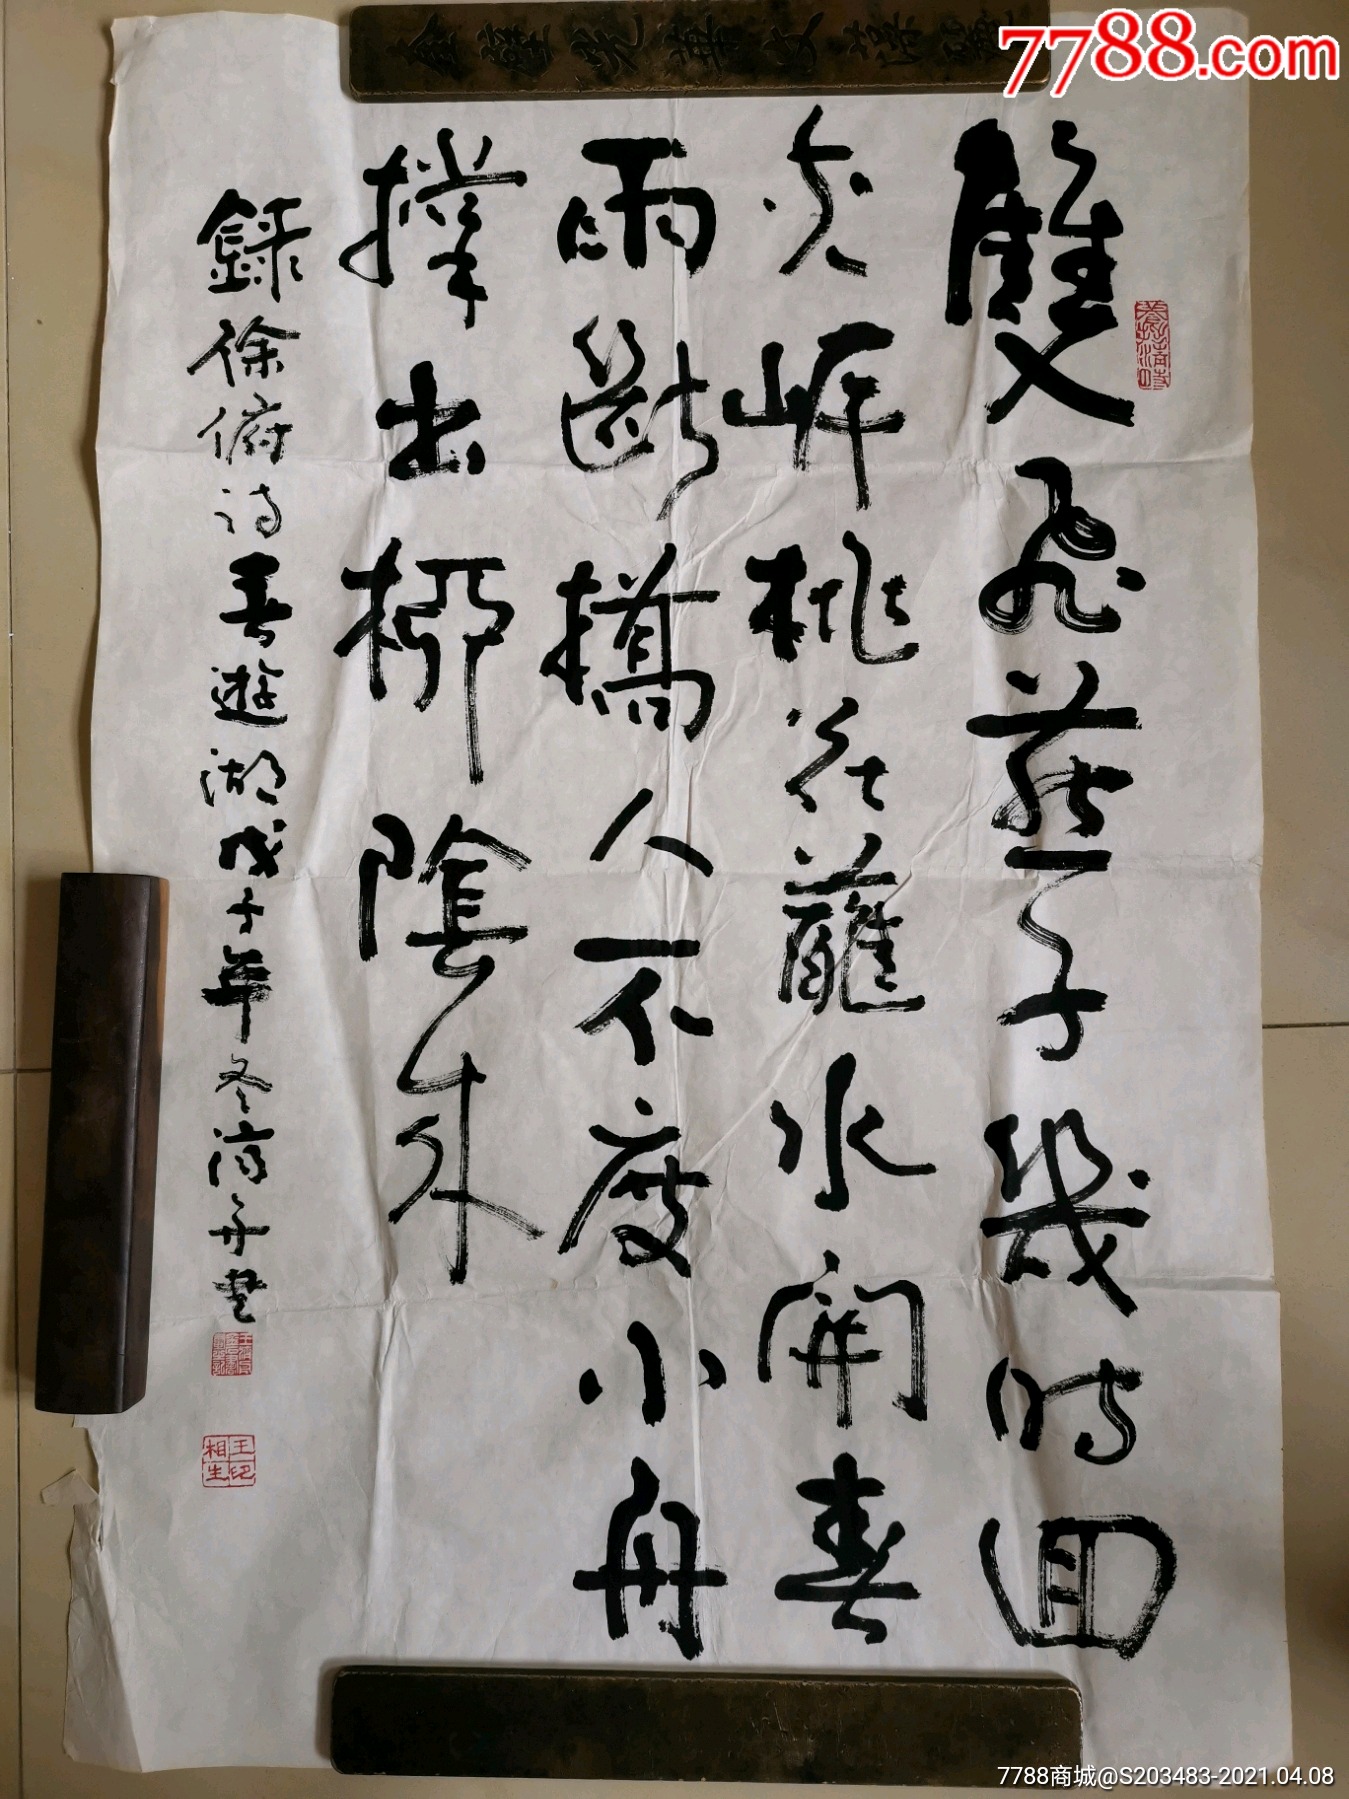 7788.com
雙飛燕子幾時回
夾岸桃花蘸水開春
雨斷橋人不度小舟
撐出柳陰來
錄徐俯詩春遊湖戊子年冬 書
王印相生
7788商城@S203483-2021.04.08